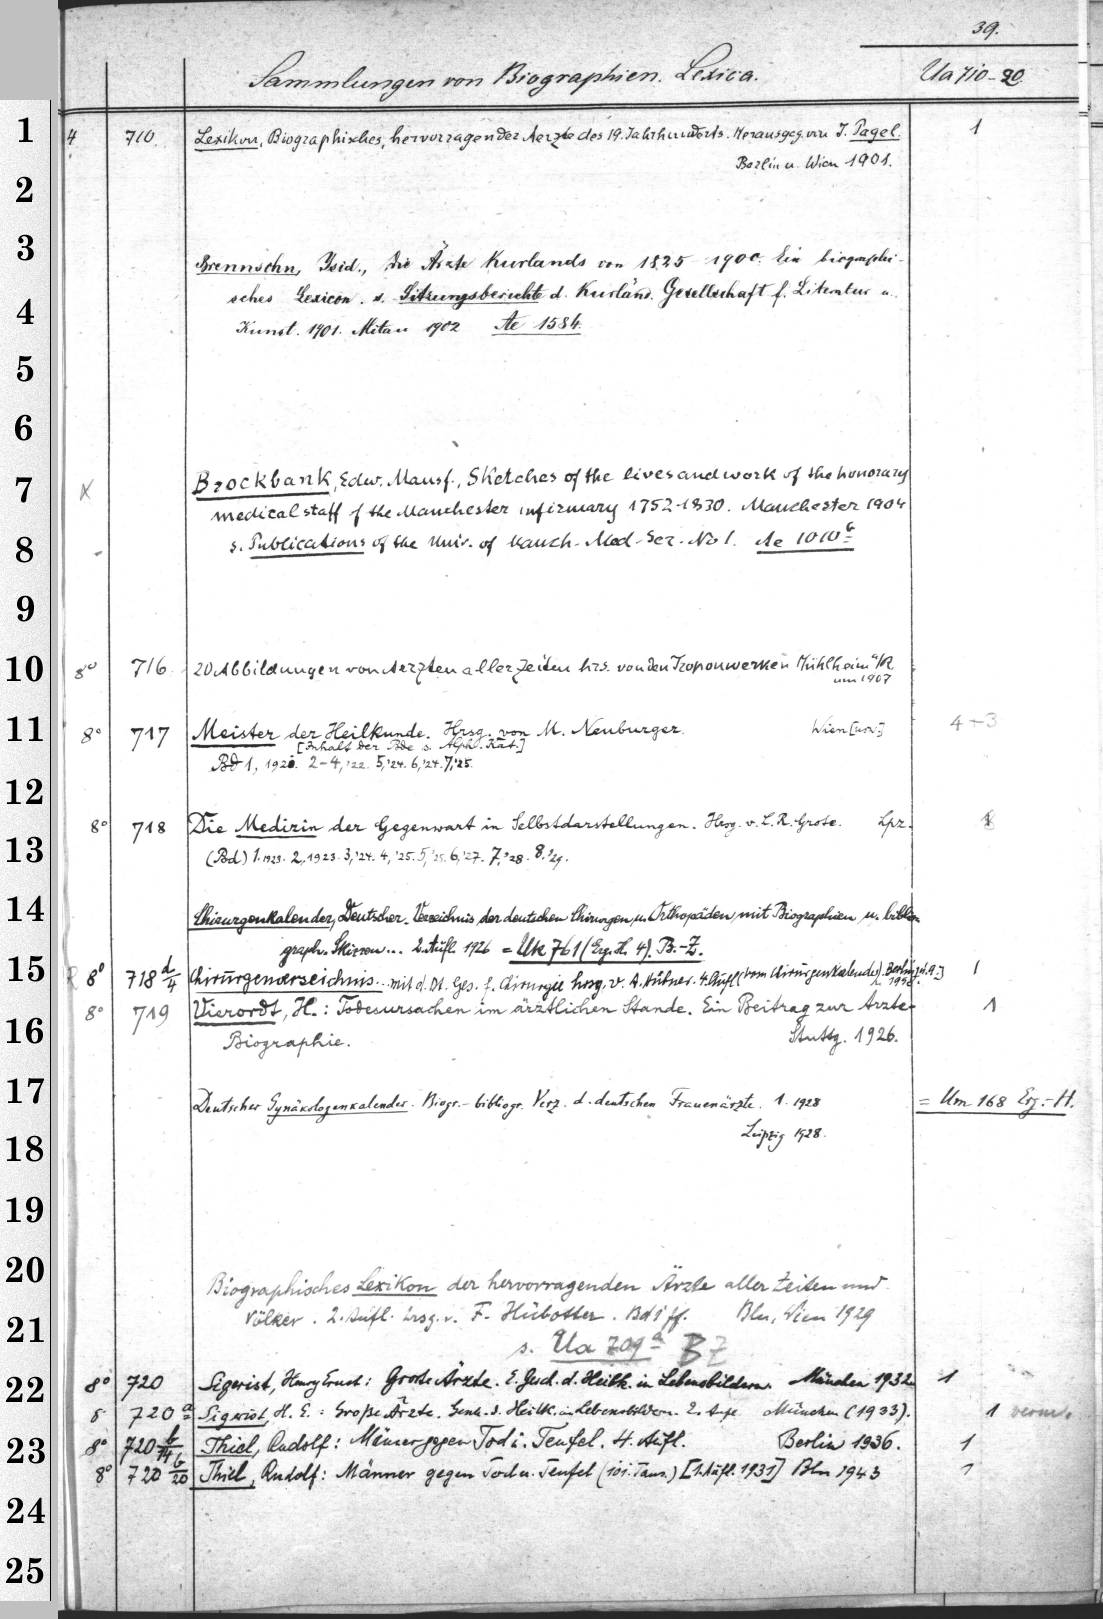 39.
Sammlungen von Biographien. Lexica. Ua 710-20
1
4 710. Lexikon, Biographisches, hervorragender Aerzte des 19. Jahrhunderts. Herausgeg. von J. Pagel. 1
Berlin u. Wien 1901.
2
3
Brennsohn, Isid., Die Ärzte Kurlands von 1825-1900. Ein biographi-
sches Lexicon. s. Sitzungsberichte d. Kurländ. Gesellschaft f. Literatur u.
4
Kunst. 1901. Mitau 1902 Ae 1584.
5
6
7
Brockbank, Edw. Mansf., Sketches of the lives and work of the honorary
medical staff of the Manchester infirmary 1752-1830. Manchester 1904
8
s. Publications of the Univ. of Manch. Med. Ser. No 1. Ae 1010 b
9
10
8° 716. 20 Abbildungen von Aerzten aller Zeiten hrs. von den Troponwerken Mühlheim a/R.
um 1907
11
8° 717 Meister der Heilkunde. Hrsg. von M. Neuburger. Wien [usw.] 4-3
[Inhalt der Bde s. Alph. Kat.]
Bd 1, 1921. 2-4, '22. 5, '24. 6, '24. 7, '25.
12
8° 718 Die Medizin der Gegenwart in Selbstdarstellungen. Hrsg. v. L. R. Grote. Lpz.
13
(Bd) 1. 1923. 2, 1923. 3, '24. 4, '25. 5, '25. 6, '27. 7, '28. 8, '29.
14
Chirurgenkalender, Deutscher. Verzeichnis der deutschen Chirurgen u. Orthopäden mit Biographien u. biblio-
graph. Skizzen... 2. Aufl. 1926 = Uk 761 (Erg. H. 4). B.-Z.
15
8° 718 d/4 Chirurgenverzeichnis.. mit d. Dt. Ges. f. Chirurgie hrsg. v. A. Hübner. 4. Aufl. (vom Chirurgenkalender). Berlin [u.a.] 1
1958.
8° 719 Vierordt, H.: Todesursachen im ärztlichen Stande. Ein Beitrag zur Ärzte- 1
16
Biographie. Stuttg. 1926.
17
Deutscher Gynäkologenkalender. Biogr.-bibliogr. Verz. d. deutschen Frauenärzte. 1. 1928 = Um 168 Erg.-H.
Leipzig 1928.
18
19
20
Biographisches Lexikon der hervorragenden Ärzte aller Zeiten und
Völker. 2. Aufl. hrsg. v. F. Hübotter. Bd 1 ff. Bln, Wien 1929
21
s. Ua 709 a BZ
22
8° 720 Sigerist, Henry Ernest: Grosse Ärzte. E. Gesch. d. Heilk. in Lebensbildern. München 1932. 1
8 720 a Sigerist, H. E.: Große Ärzte. Gesch. d. Heilk. in Lebensbildern. 2. Aufl. München (1933). 1 verm.
23
8° 720 b/14 Thiel, Rudolf: Männer gegen Tod u. Teufel. 4. Aufl. Berlin 1936. 1
8° 720 b/20 Thiel, Rudolf: Männer gegen Tod u. Teufel (101. Taus.) [1. Aufl. 1931] Bln 1943 1
24
25